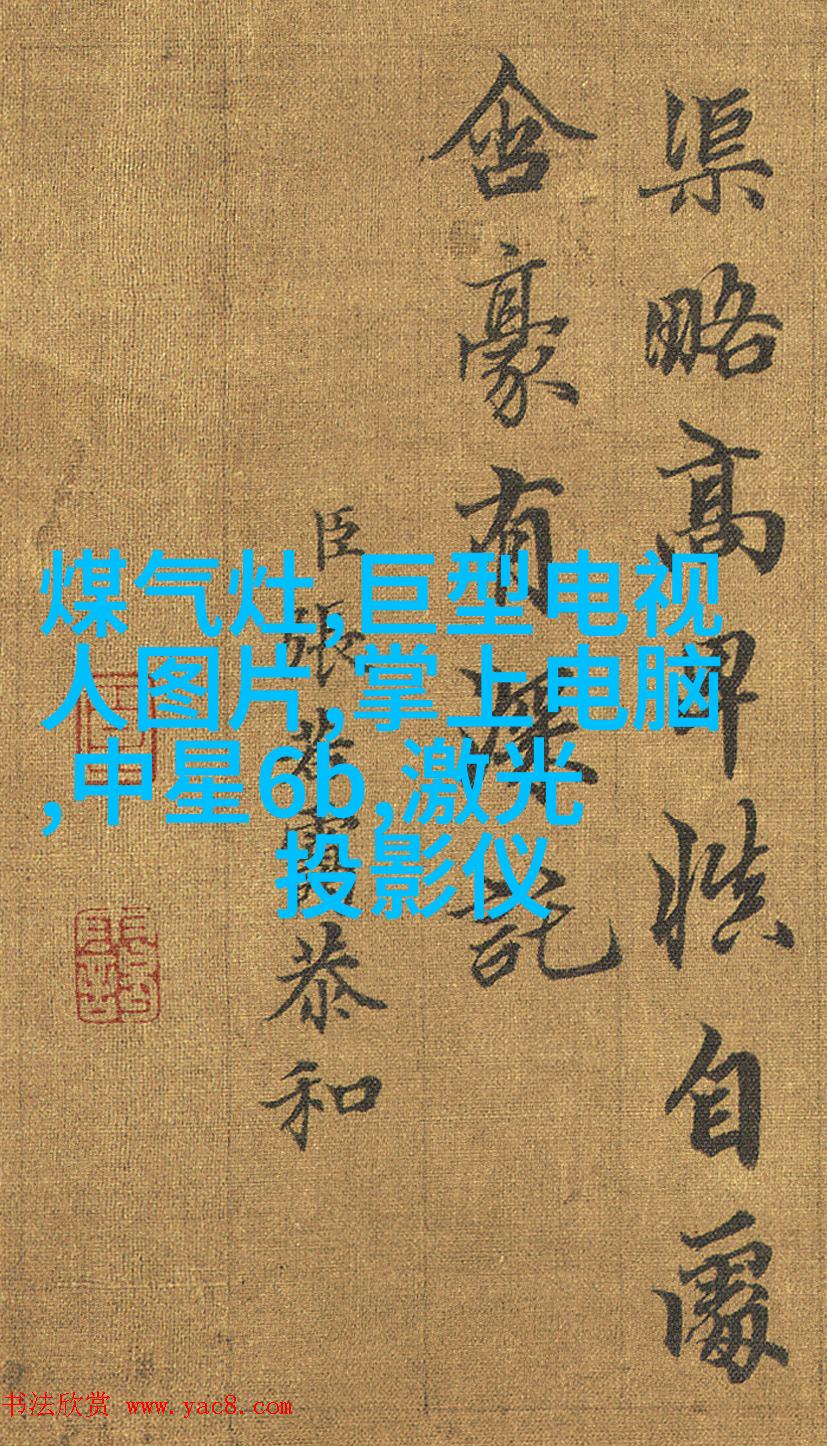 渠略高卑慎自處
含豪有深託
臣張若靄恭和
煤气灶,巨型电视
人图片,掌上电脑
,中星6b,激光
投影仪
书法欣赏 www.yac8.com